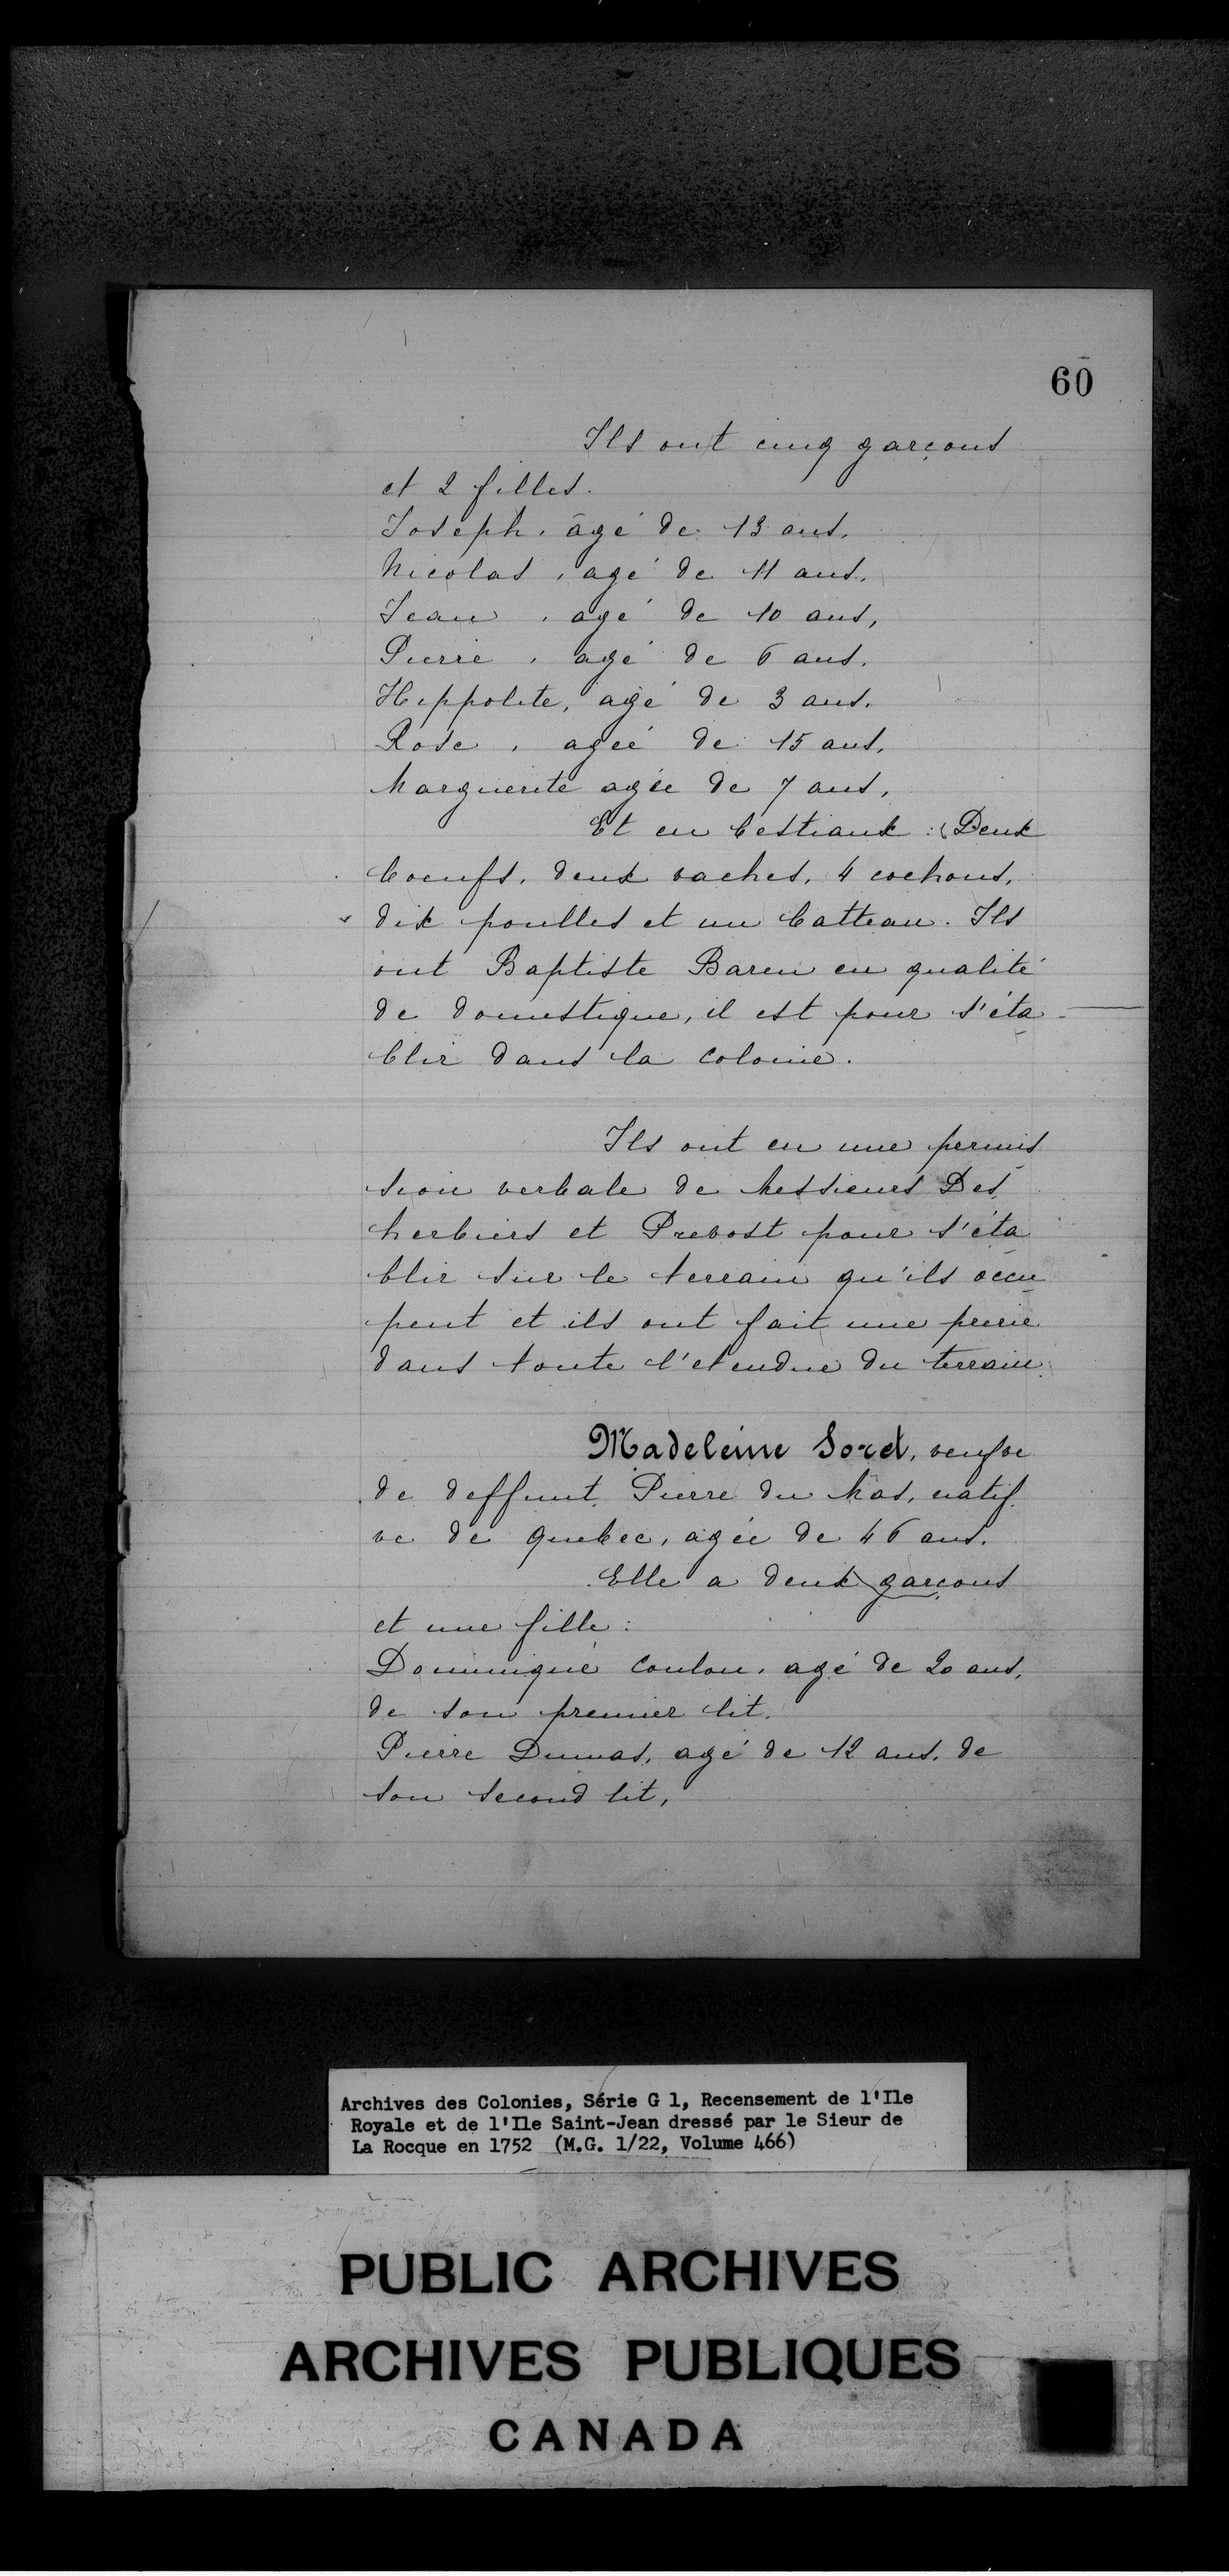 60
Ils ont cinq garçons
et 2 filles.
Joseph, âgé de 13 ans,
Nicolas, agé de 11 ans,
Jean, agé de 10 ans,
Pierre, agé de 6 ans,
Hippolite, agé de 3 ans,
Rose, agée de 15 ans,
Marguerite agée de 7 ans,
Et en bestiaux : Deux
boeufs, deux vaches, 4 cochons,
dix poulles et un batteau. Ils
ont Baptiste Baren en qualité
de domestique, il est pour s'éta-
blir dans la colonie.
Ils ont eu une permis
sion verbale de Messieurs Des
herbiers et Prevost pour s'éta
blir sur le terrain qu'ils occu
pent et ils ont fait une prerie
dans toute l'etendue du terrain.
Madeleine Soret, veufve
de deffunt Pierre du Mas, natif
ve de quebec, agée de 46 ans.
Elle a deux garçons
et une fille :
Dominique Coulon, agé de 20 ans,
de son premier lit.
Pierre Dumas, agé de 12 ans, de
son second lit,
Archives des Colonies, Série G 1, Recensement de l'Ile
Royale et de l'Ile Saint-Jean dressé par le Sieur de
La Rocque en 1752 (M.G. 1/22, Volume 466)
PUBLIC ARCHIVES
ARCHIVES PUBLIQUES
CANADA